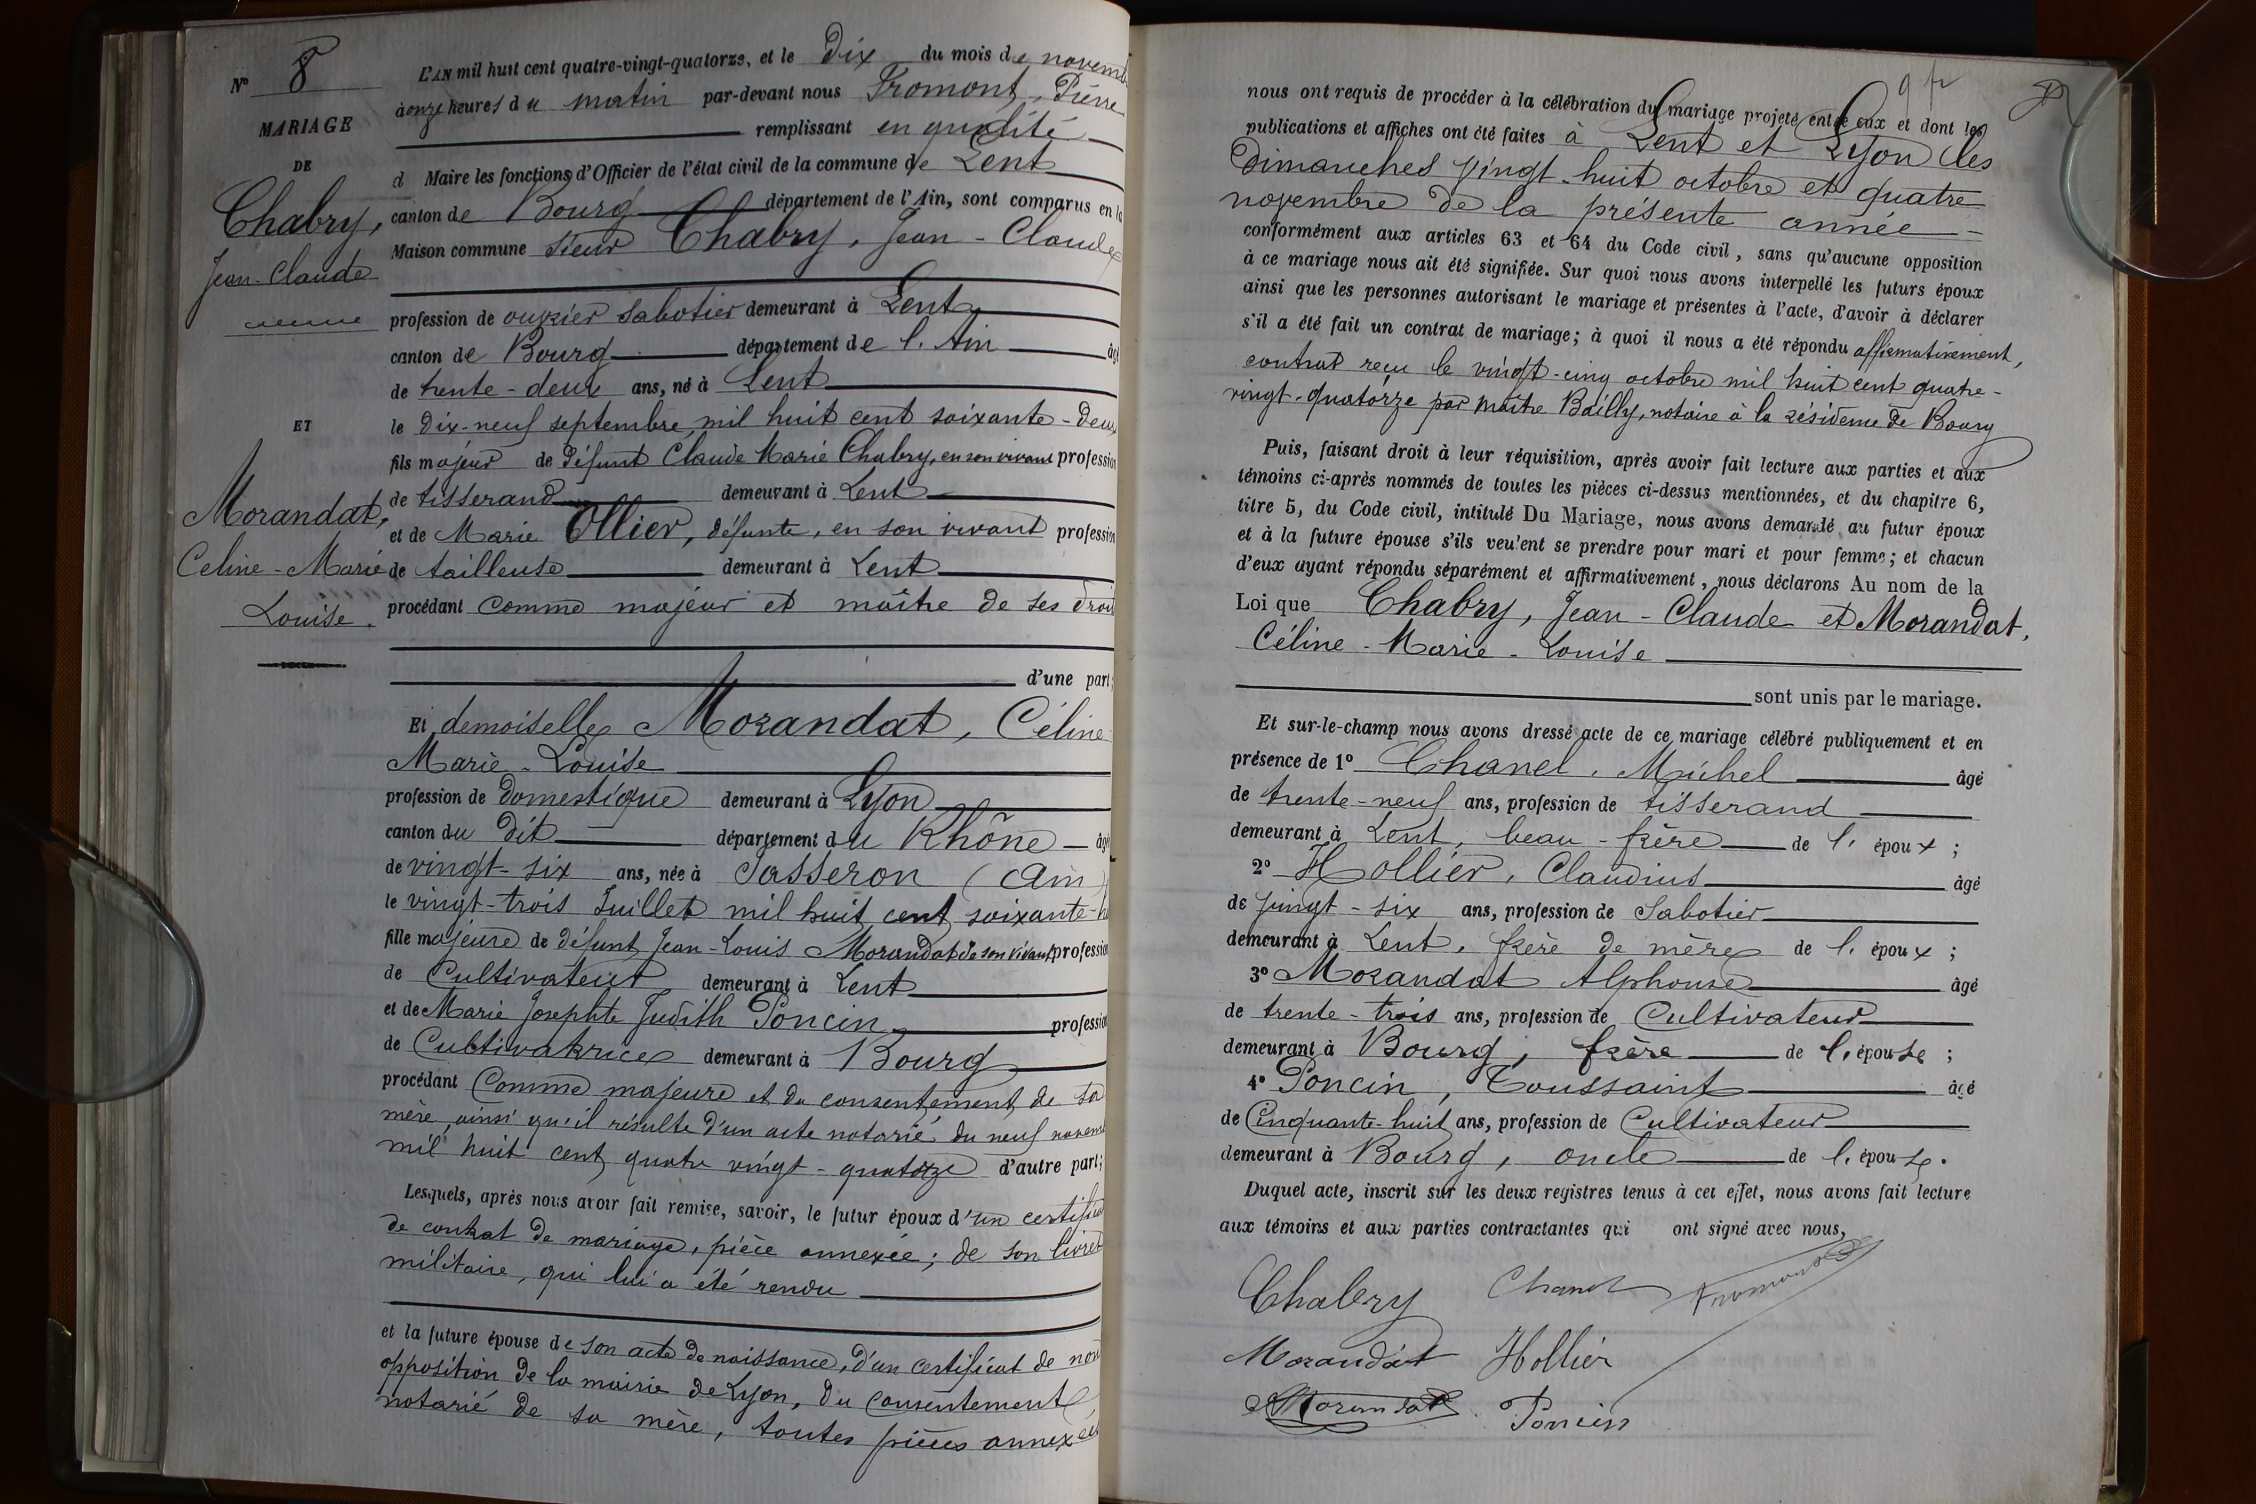 N° 8
MARIAGE
DE
Chabry,
Jean-Claude
ET
Morandat,
Céline-Marie
Louise.
L'AN mil huit cent quatre-vingt-quatorze, et le Dix du mois de novemb
à onze heures du matin par-devant nous Fromont, Pierre
remplissant en qualité
d Maire les fonctions d'Officier de l'état civil de la commune de Lent
canton de Bourg département de l'Ain, sont comparus en la
Maison commune sieur Chabry, Jean-Claude
profession de ouvrier sabotier demeurant à Lent
canton de Bourg département de l'Ain âgé
de trente-deux ans, né à Lent
le dix-neuf septembre mil huit cent soixante-deux
fils majeur de défunt Claude Marie Chabry, en son vivant profession
de tisserand demeurant à Lent
et de Marie Ollier, défunte, en son vivant profession
de tailleuse demeurant à Lent
procédant comme majeur et maître de ses droit
d'une part;
Et demoiselle Morandat, Céline
Marie-Louise
profession de domestique demeurant à Lyon
canton du dit département du Rhône âgé
de vingt-six ans, née à Sasseron (Ain)
le vingt-trois Juillet mil huit cent soixante-h
fille majeure de défunt Jean-Louis Morandat de son vivant profession
de Cultivateur demeurant à Lent
et de Marie Josephte Judith Poncin profession
de Cultivatrice demeurant à Bourg
procédant Comme majeure et du consentement de sa
mère, ainsi qu'il résulte d'un acte notarié du neuf novemb
mil huit cent quatre vingt-quatorze d'autre part;
Lesquels, après nous avoir fait remise, savoir, le futur époux d'un certificat
de contrat de mariage, pièce annexée; de son livret
militaire, qui lui a été rendu
et la future épouse de son acte de naissance, d'un certificat de non
opposition de la mairie de Lyon, du consentement
notarié de sa mère, toutes pièces annexées
nous ont requis de procéder à la célébration du mariage projeté entre eux et dont les
publications et affiches ont été faites à Lent et Lyon les
Dimanches vingt-huit octobre et quatre
novembre de la présente année
conformément aux articles 63 et 64 du Code civil, sans qu'aucune opposition
à ce mariage nous ait été signifiée. Sur quoi nous avons interpellé les futurs époux
ainsi que les personnes autorisant le mariage et présentes à l'acte, d'avoir à déclarer
s'il a été fait un contrat de mariage; à quoi il nous a été répondu affirmativement,
contrat reçu le vingt-cinq octobre mil huit cent quatre-
vingt-quatorze par maître Bailly, notaire à la résidence de Bourg
Puis, faisant droit à leur réquisition, après avoir fait lecture aux parties et aux
témoins ci-après nommés de toutes les pièces ci-dessus mentionnées, et du chapitre 6,
titre 5, du Code civil, intitulé Du Mariage, nous avons demandé au futur époux
et à la future épouse s'ils veu'ent se prendre pour mari et pour femme; et chacun
d'eux ayant répondu séparément et affirmativement, nous déclarons Au nom de la
Loi que Chabry, Jean-Claude et Morandat,
Céline-Marie-Louise
sont unis par le mariage.
Et sur-le-champ nous avons dressé acte de ce mariage célébré publiquement et en
présence de 1° Chanel, Michel âgé
de trente-neuf ans, profession de tisserand
demeurant à Lent, beau-frère de l'époux;
2° Hollier, Claudius âgé
de vingt-six ans, profession de Sabotier
demeurant à Lent, frère de mère de l'époux;
3° Morandat Alphonse âgé
de trente-trois ans, profession de Cultivateur
demeurant à Bourg, frère de l'épouse;
4° Poncin, Toussaint âgé
de Cinquante-huit ans, profession de Cultivateur
demeurant à Bourg, oncle de l'épouse.
Duquel acte, inscrit sur les deux registres tenus à cet effet, nous avons fait lecture
aux témoins et aux parties contractantes qui ont signé avec nous,
Chabry Chanel Fromont
Morandat Hollier
Morandat Poncin